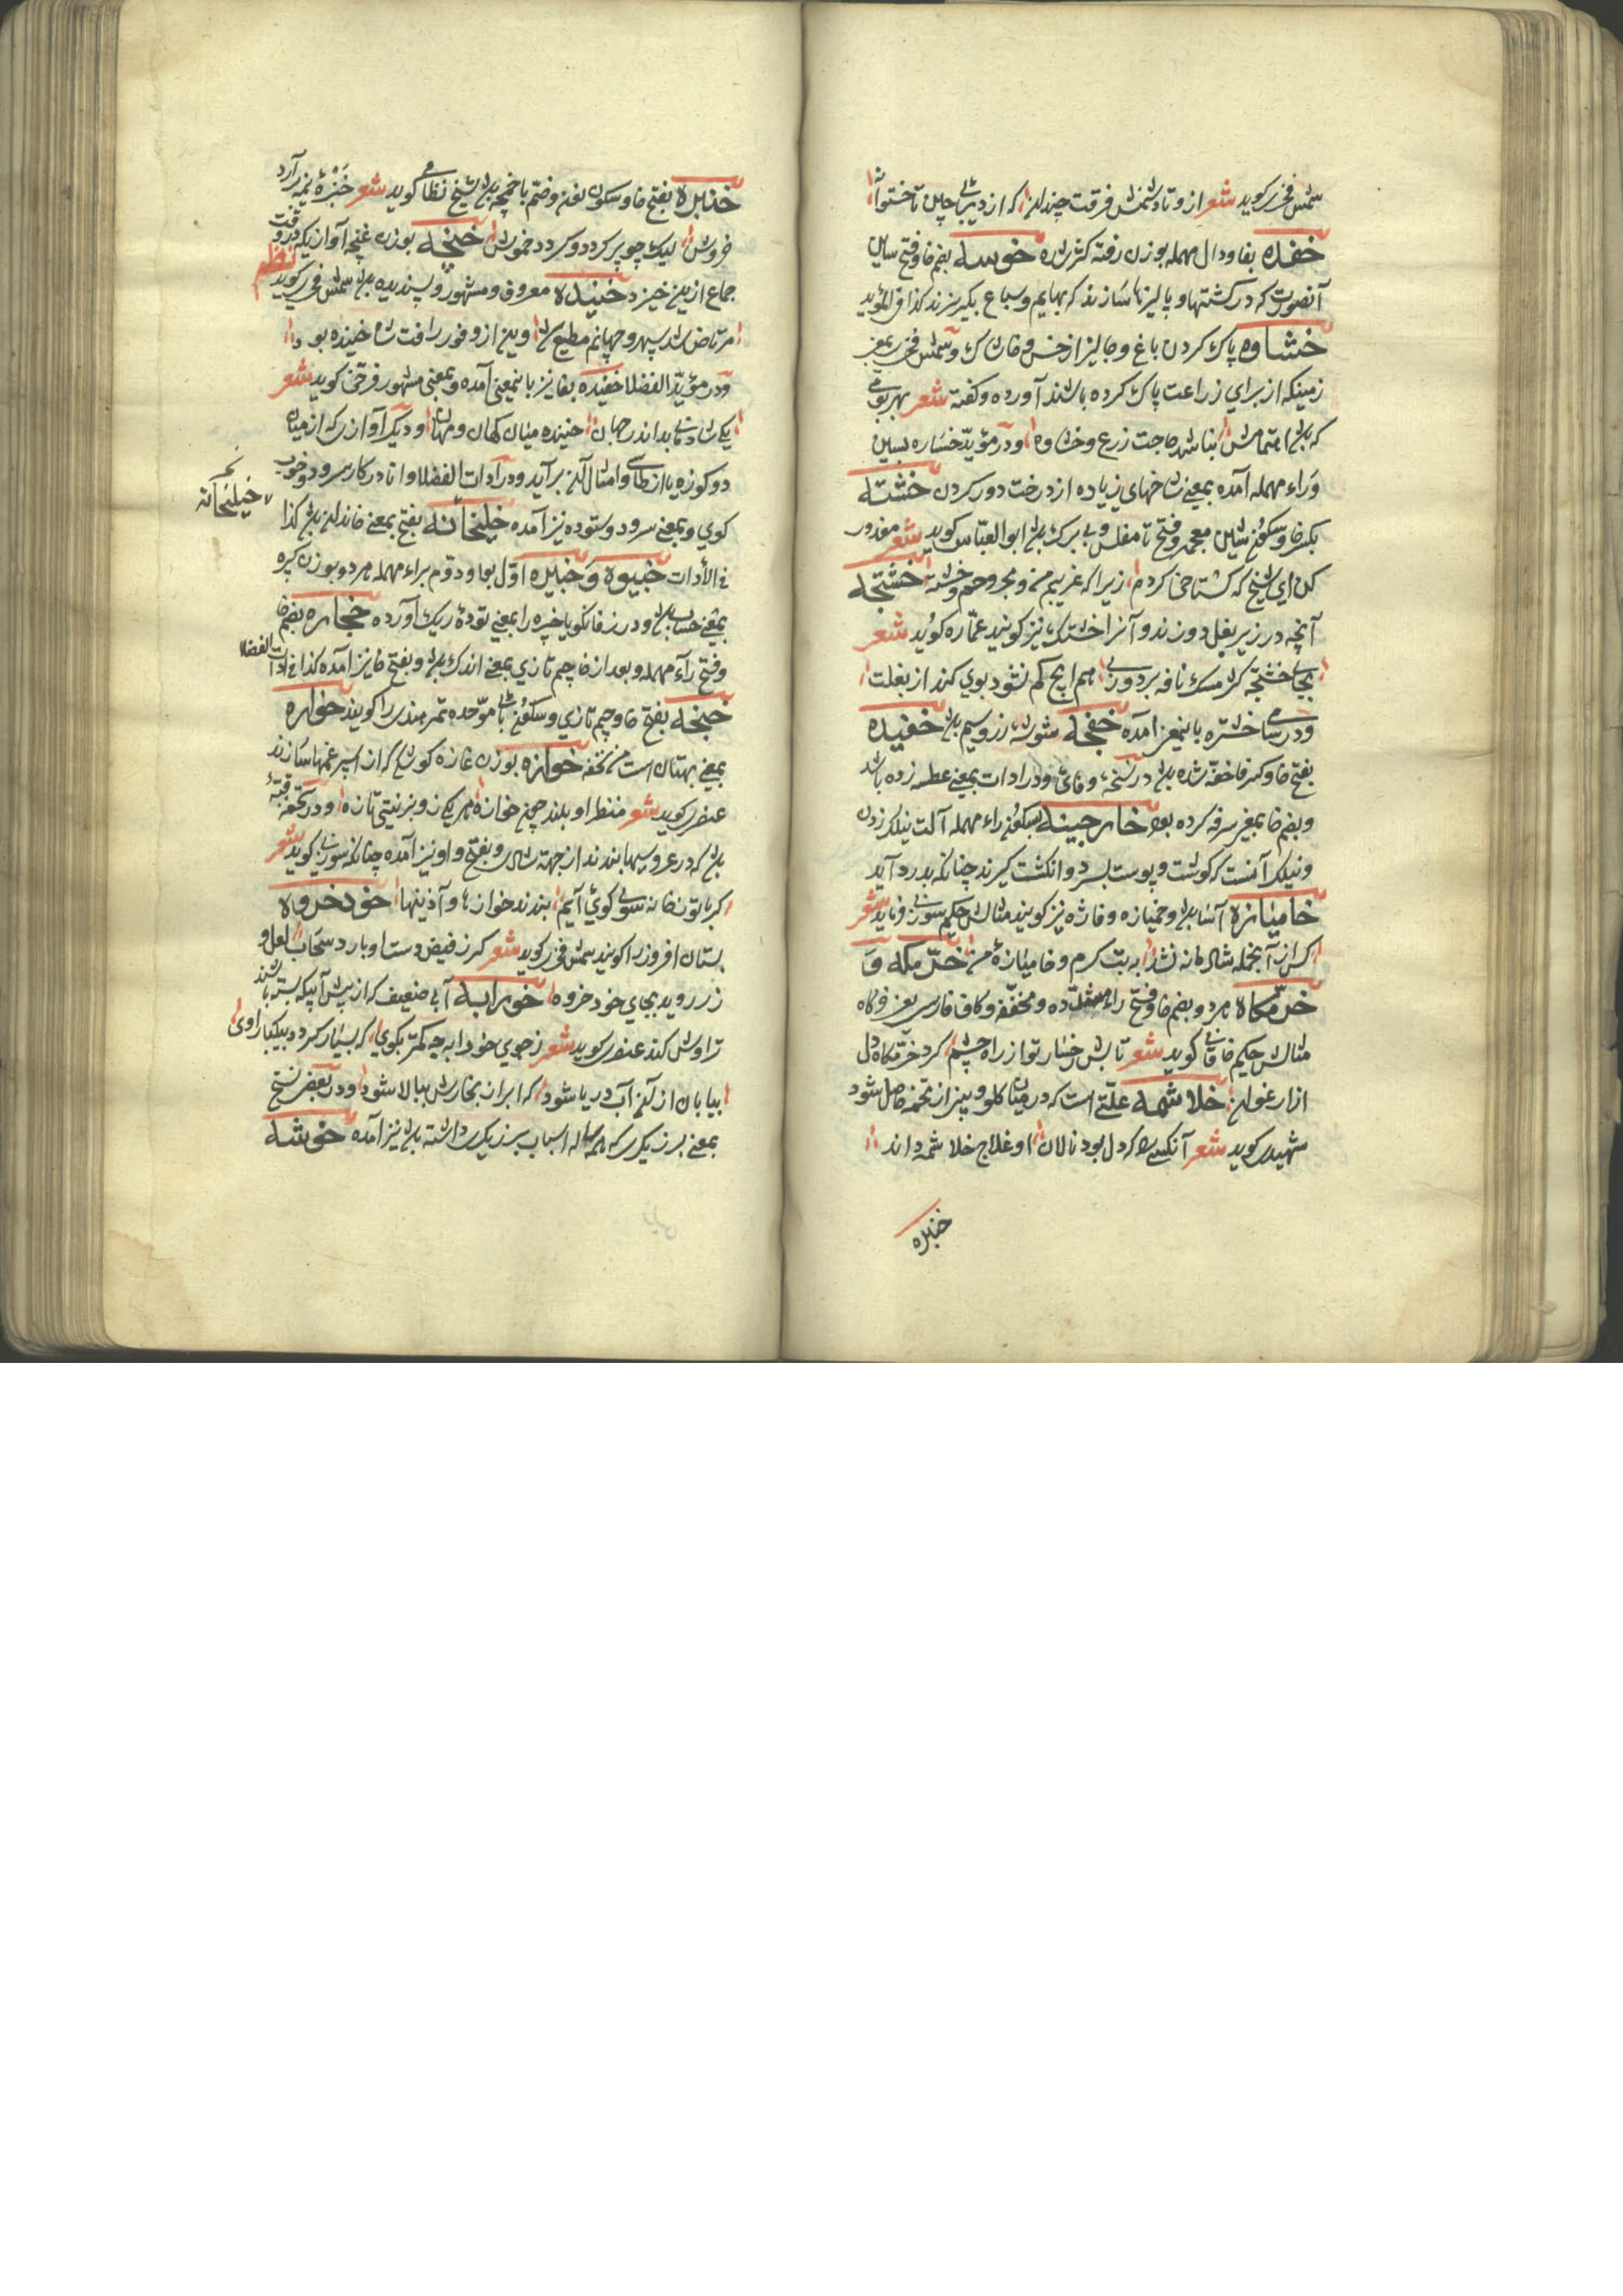 شمس فخری کوید شعر از و تاد شمنش فرقت چندان که از دیبای چین تا ختوانه
خفده بفا و دال مهمله بوزن رفته کژ شده خوسه بضم خا و فتح سین
آنصورت که در کشتها و پالیزها سازند که بهایم و سباع بگریزند کذا فی المؤید
خشاوه پاک کردن باغ و جالیز از خس و خاشاک و شمس فخری بمعنی
زمینکه از برای زراعت پاک کرده باشند آورده و کفته شعر بهر بومی
که باشد اهتمامش نباشد حاجت زرع و خشاوه و در مؤید خساره بسین
و راء مهمله آمده بمعنی شاخهای زیاده از درخت دور کردن خشته
بکسر خا و سکون شین معجمه و فتح تا مفلس و بی برک باشد ابو العباس کوید شعر معذور
کن ای شیخ که کستاخی کردم زیرا که غریبم من و مجروحم و خشته خشتجه
آنچه در زیر بغل دوزند و آنرا خشتک نیز کویند عماره کوید شعر
بجای خشتجه کر مشک نافه بردوزی هم ایچ کم نشود بوی کند از بغلت
و در سامی خشتره باینمعنی آمده خفجه شوشه زر و سیم باشد خفیده
بفتح خا و کسر فا خفه شده باشد در نسخه وفائی و در ادات بمعنی عطسه زده باشد
و بضم خا بمعنی سرفه کرده بود خارجینه بسکون راء مهمله آلت نیلک زدن
و نیلک آنست که کوشت و پوست بسر دو انکشت کیرند چنانکه بدرد آید
خامیازه آسا باشد و خمیازه و فاژه نیز کویند مثالش حکیم سوزنی فرماید شعر
کس از آنجمله شال مانه نشد به بت کرم و خامیازه من خرمکه و
خرمکاه هر دو بضم خا و فتح راء مشدده و مخففه و کاف فارسی یعنی خرکاه
مثالش حکیم خاقانی کوید شعر تابش رخسار تو از راه چشم کرد خرمکاه دل
ازارغوان خلاشمه علتی است که در میان کلو و بینی از تخمه حاصل شود
شهیدی کوید شعر آنکسی را که دل بود نالان او علاج خلاشمه داند
خنبره
خنبره بفتح خا و سکون نون و ضم با خمچه باشد شیخ نظامی کوید شعر خنبرۀ نیمه برآرد
خروش لیک چو پر کردد کردد خموش خنجه بوزن غنچه آوازیکه در وقت
جماع از بینی خیزد خنیده معروف و مشهور و پسندیده باشد شمس فخری کوید نظم
مرتاض شد سپهر و جهانم مطیع شد وین از وفور رافت شاه خنیده بود
و در مؤید الفضلا خفیده بفا نیز باینمعنی آمده و بمعنی مشهور فرخی کوید شعر
یکی شادمانی بد اندر جهان خنیده میان کهان و مهان و دیکر آوازی که از میان
دو کوزه یا از طاسی و امثال آن برآید و در ادات الفضلا دانا در کار سرود و خوب
کوی و بمعنی سرود و ستوده نیز آمده خیلخانه بفتح بمعنی خاندان باشد کذا
خیلخانه
فی الأدات خبیوه و خبیره اول بواو و دوم براء مهمله هر دو بوزن کپره
بمعنی حساب باشد و در زفانکویا خبره را بمعنی تودۀ ریک آورده خجاره بضم خا
و فتح راء مهمله و بعد از خا جیم تازی بمعنی اندک باشد و بفتح خا نیز آمده کذا فی ادات الفضلا
خبجه بفتح خا و جیم تازی و سکون باء موحده تمر هندی را کویند خواره
بمعنی بهتان است من تحفه خوازه بوزن غازه کوشکی که از اسپرغمها سازند
عنصری کوید شعر منظر او بلند چون خوازه هر یکی زو بزینتی تازه و در تحفه قبه
باشد که در عروسیها بندند از جهت شادی و بفتح واو نیز آمده چنانکه سوزنی کوید شعر
کر باتون خانه سوی کوی آیم بندند خوازها و آذینها خودخروه
بستان افروز را کویند شمس فخری کوید شعر کر ز فیض دست او بارد سحاب لعل و
زر روید بجای خودخروه خورابه آبی ضعیف که از پیش آبیکه بسته باشند
تراوش کند عنصری کوید شعر ز جوی خورابه چه کمتر بکوی که بسیار کردد بیکبار اوی
بیابان از آن آب دریا شود که ابر از بخارش ببالا شود و در بعضی نسخ
بمعنی برزیکری که همه ساله اسباب برزیکری داشته باشد نیز آمده خوشه